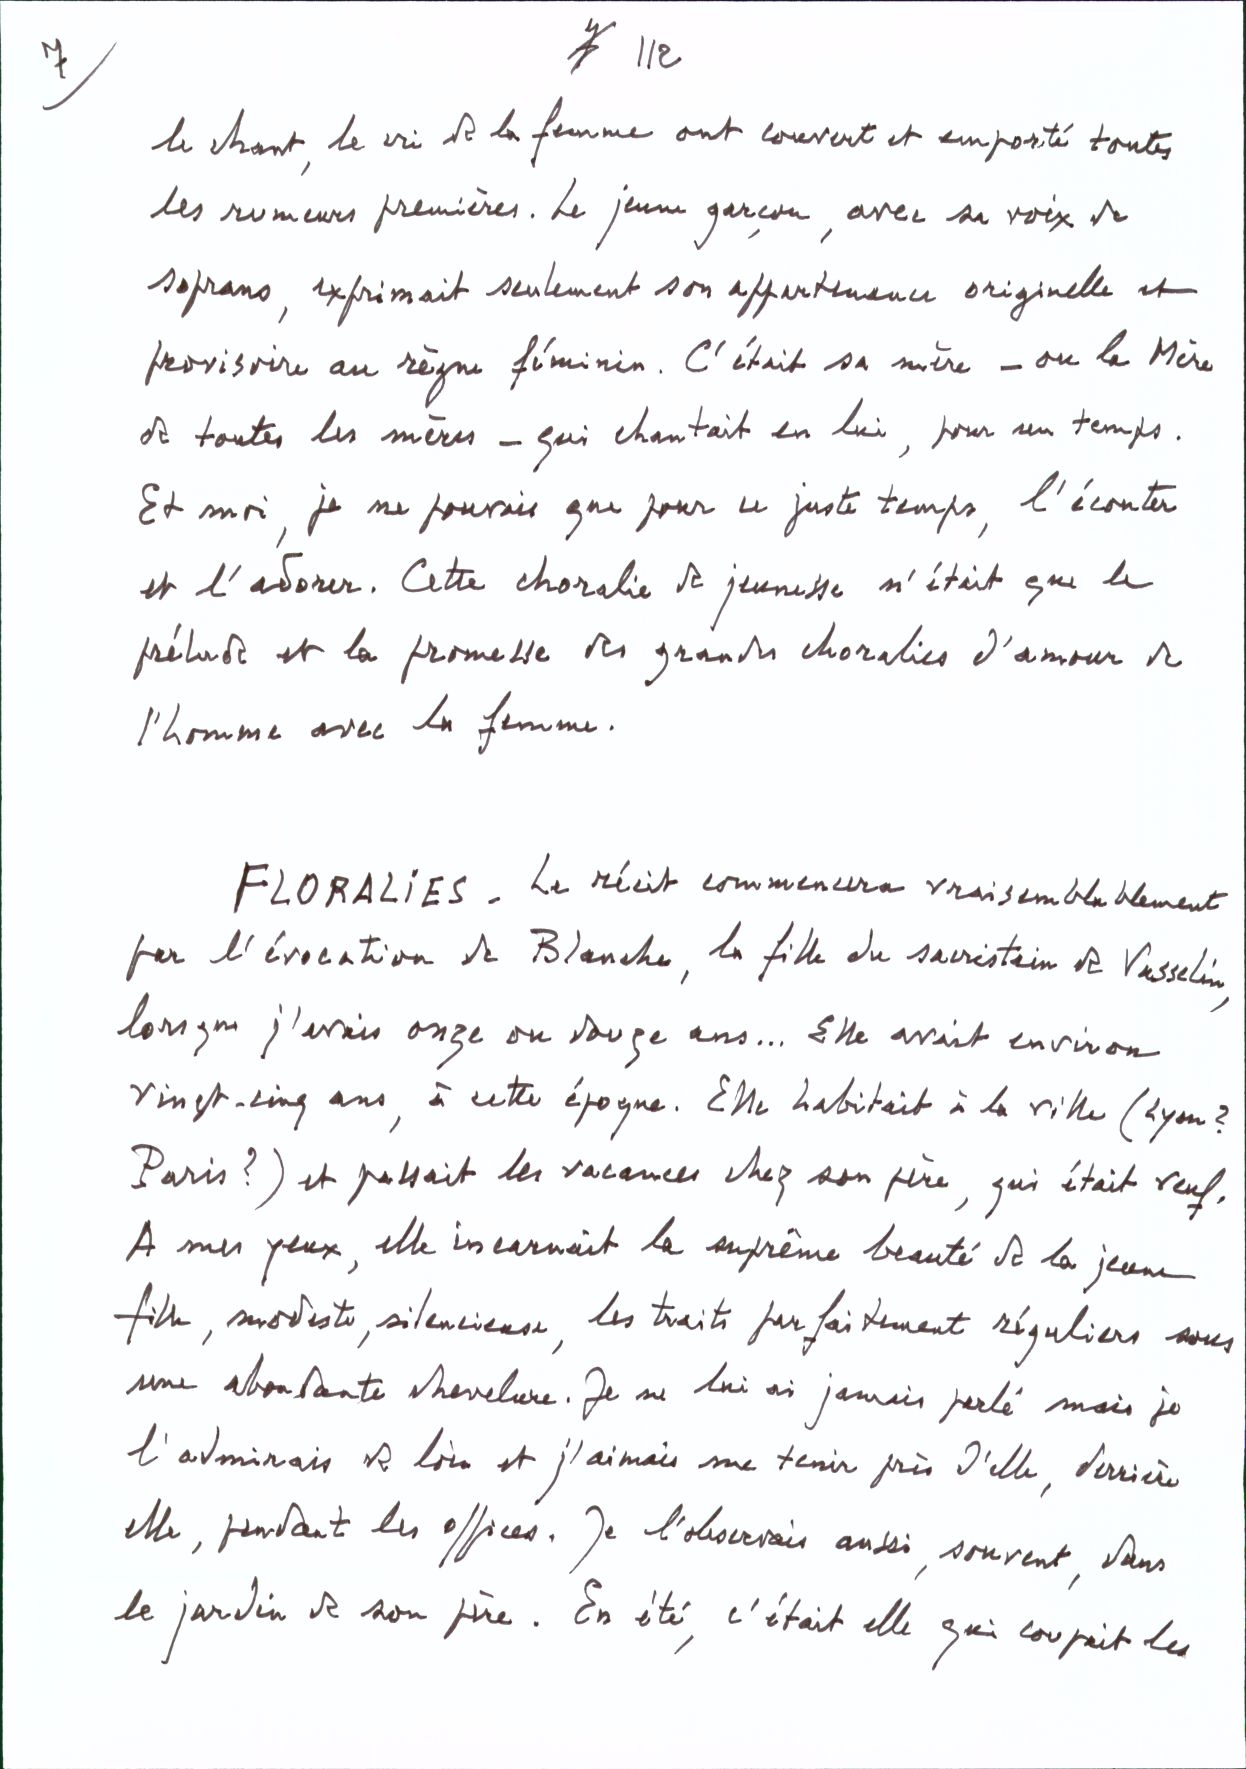 7
112
le chant, le cri de la femme ont couvert et emporté toutes
les rumeurs premières. Le jeune garçon, avec sa voix de
soprano, exprimait seulement son appartenance originelle et
provisoire au règne féminin. C'était sa mère – ou la Mère
de toutes les mères – qui chantait en lui, pour un temps.
Et moi, je ne pouvais que pour ce juste temps, l'écouter
et l'adorer. Cette choralie de jeunesse n'était que le
prélude et la promesse des grandes choralies d'amour de
l'homme avec la femme.
FLORALIES - Le récit commencera vraisemblablement
par l'évocation de Blanche, la fille du sacristain de Vasselin,
lorsque j'avais onze ou douze ans... Elle avait environ
vingt-cinq ans, à cette époque. Elle habitait à la ville (Lyon ?
Paris ?) et passait les vacances chez son père, qui était veuf.
A mes yeux, elle incarnait la suprême beauté de la jeune
fille, modeste, silencieuse, les traits parfaitement réguliers sous
une abondante chevelure. Je ne lui ai jamais parlé mais je
l'admirais de loin et j'aimais me tenir près d'elle, derrière
elle, pendant les offices. Je l'observais aussi, souvent, dans
le jardin de son père. En été, c'était elle qui coupait les